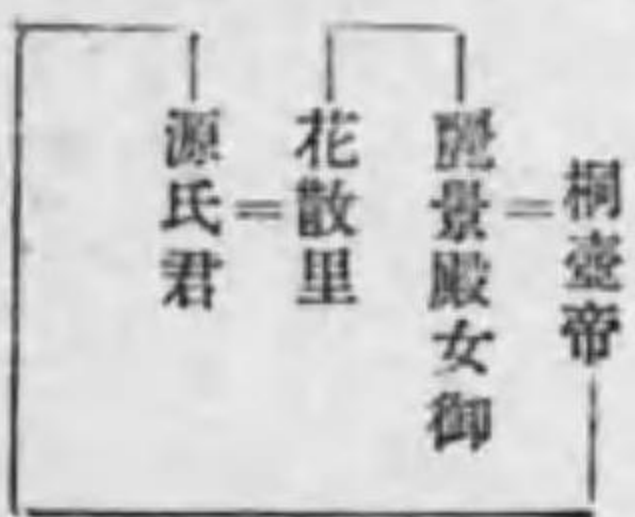 桐壺帝
麗景殿女御
花散里
源氏君